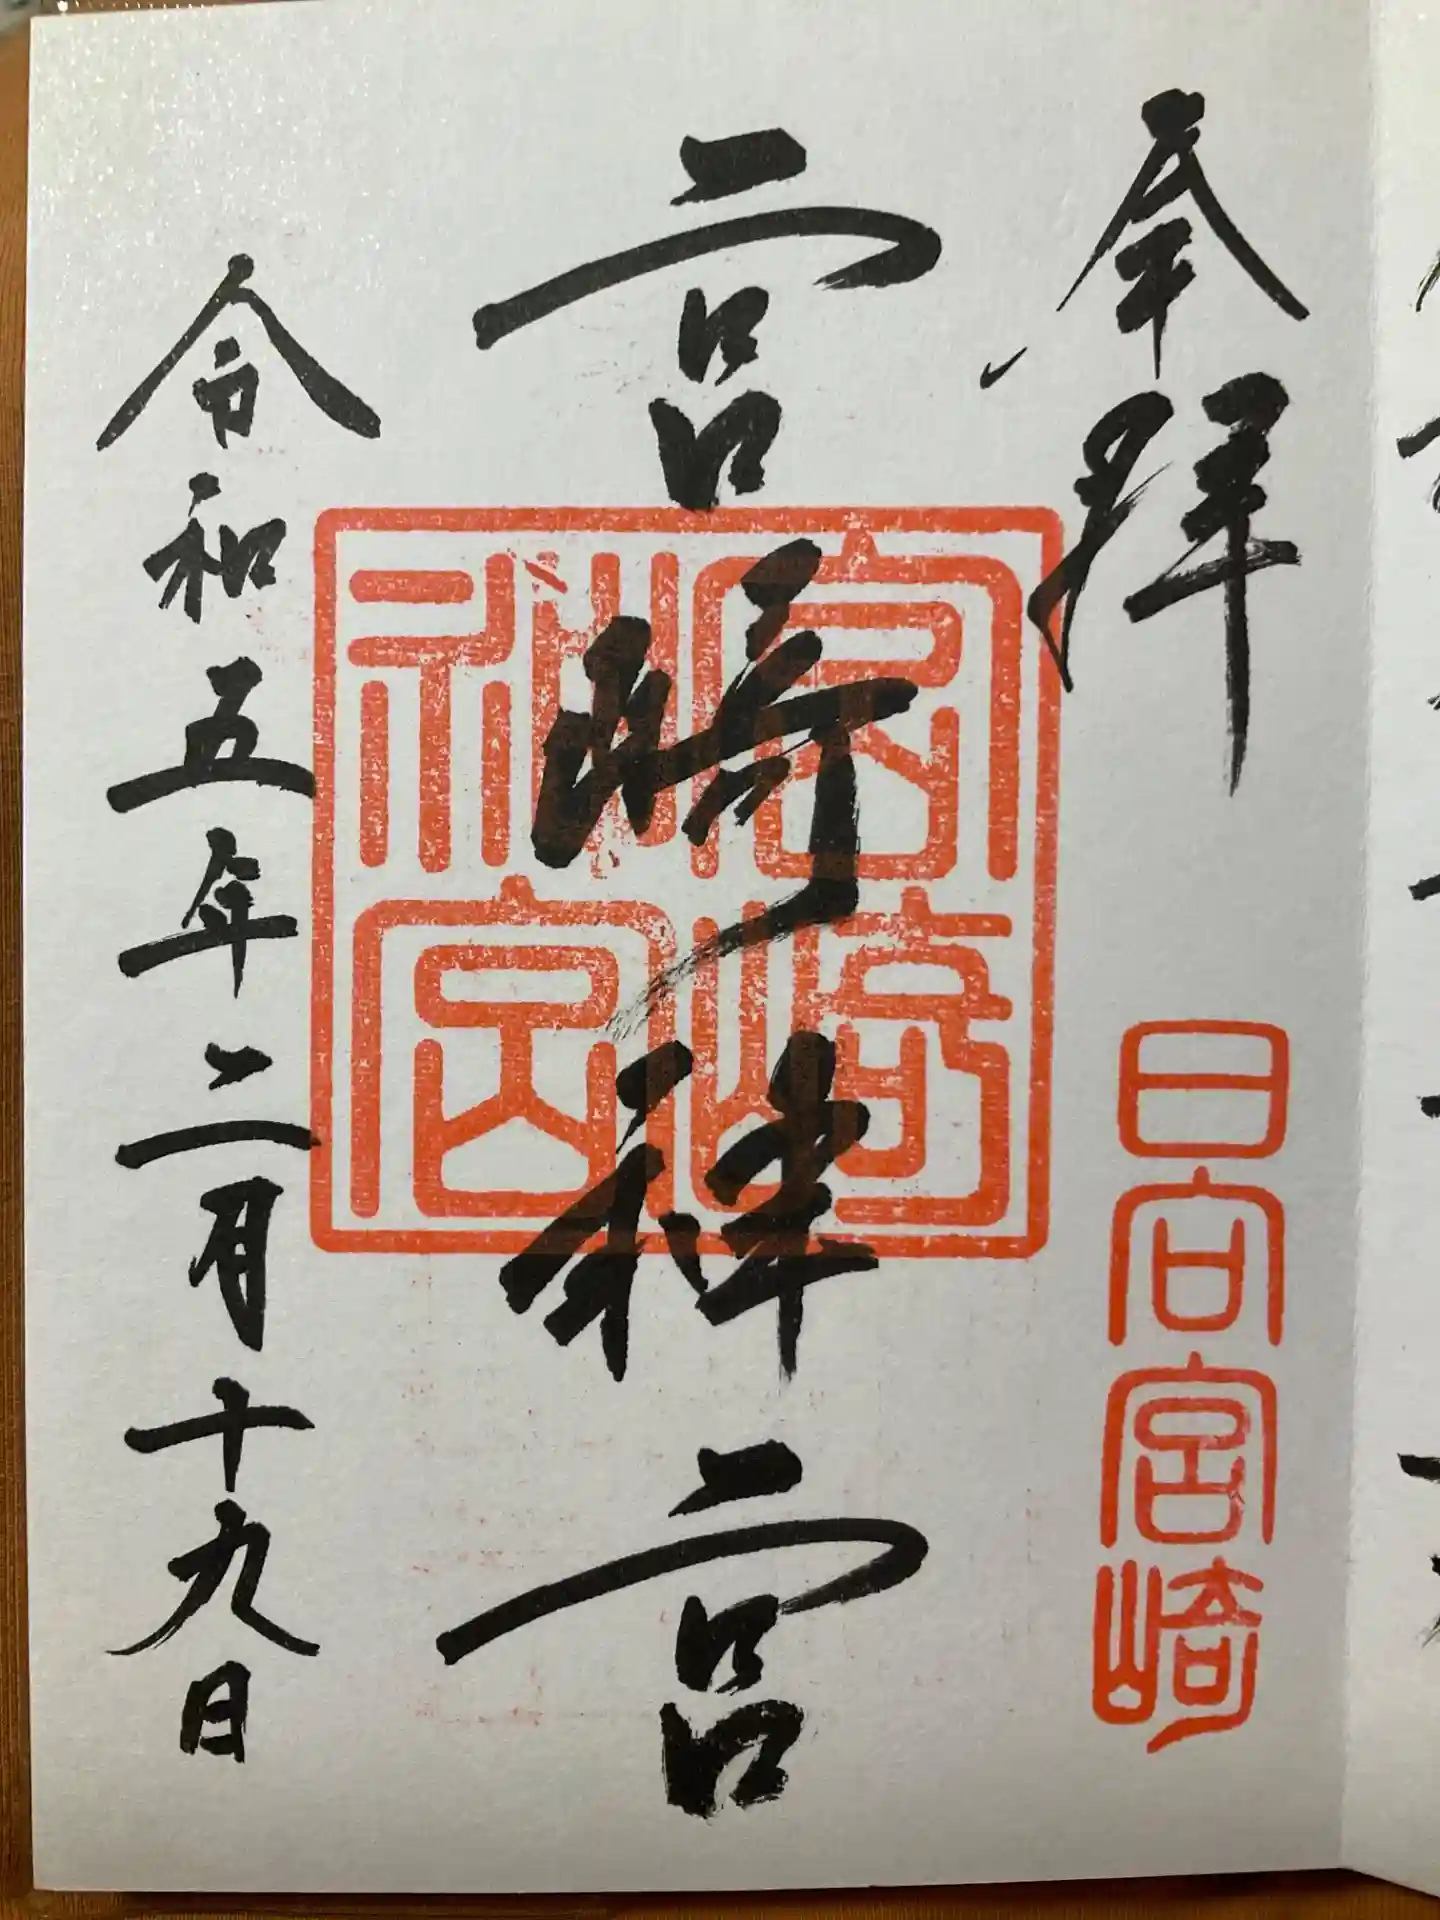 奉拝
日向宮崎
宮崎神宮
宮崎神宮
令和五年二月十九日